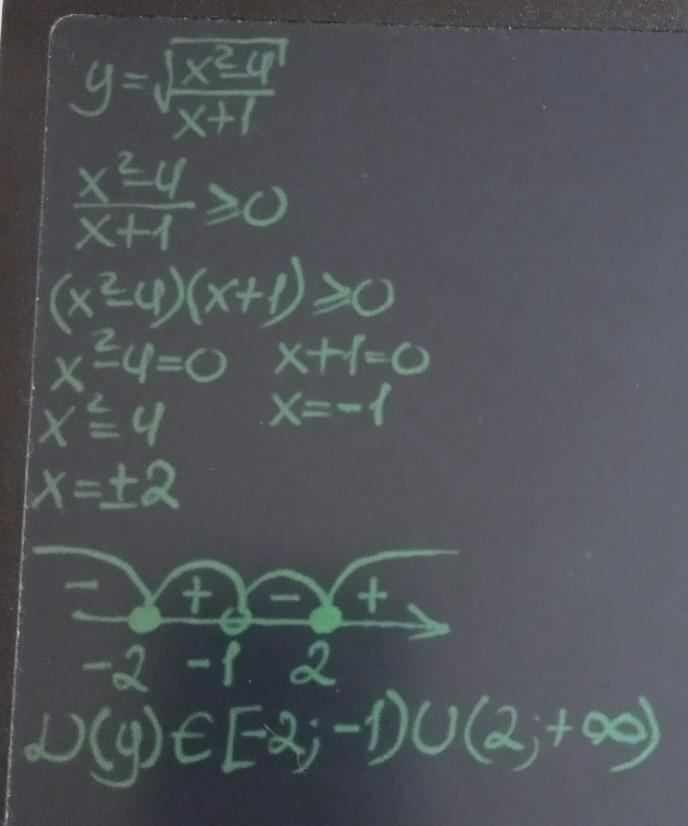 y=√((x²-4)/(x+1))
(x²-4)/(x+1) ≥0
(x²-4)(x+1)≥0
x²-4=0 x+1=0
x²=4 x=-1
x=±2
- + - +
-2 -1 2
D(y)∈[-2;-1)∪(2;+∞)